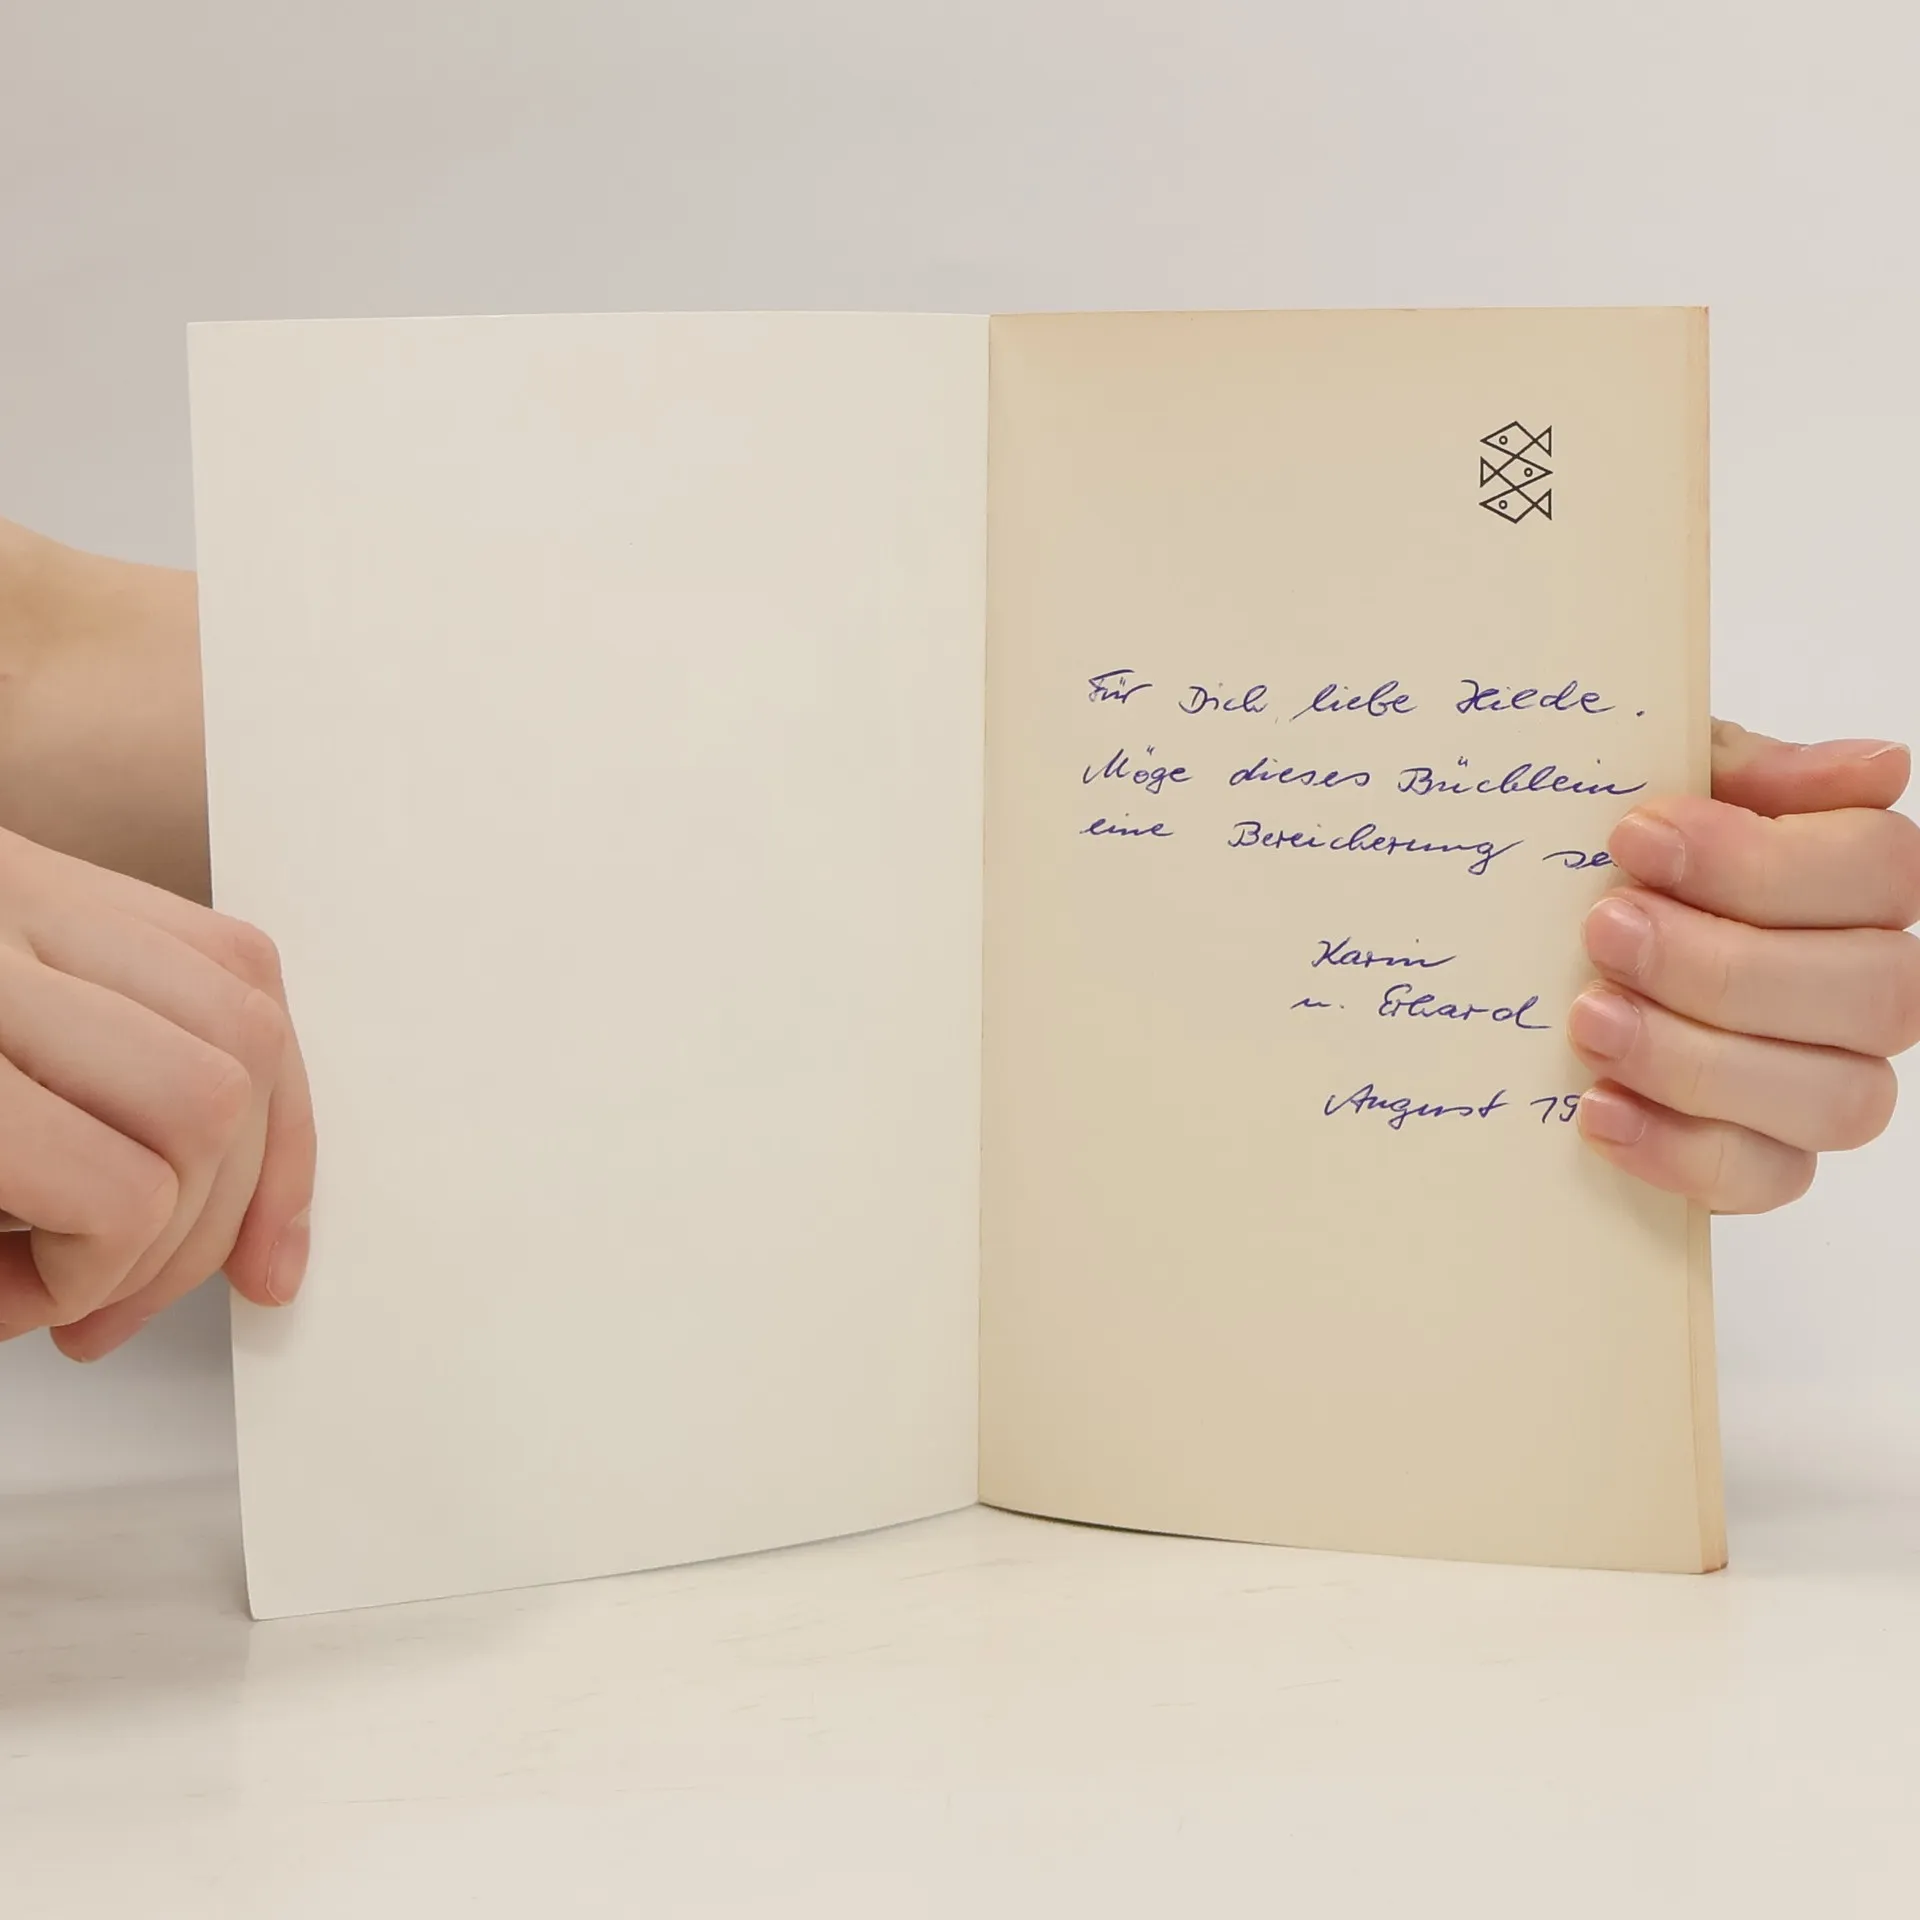 Für Dich, liebe Hilde.
Möge dieses Büchlein
eine Bereicherung
Karin
u. Erhard
August